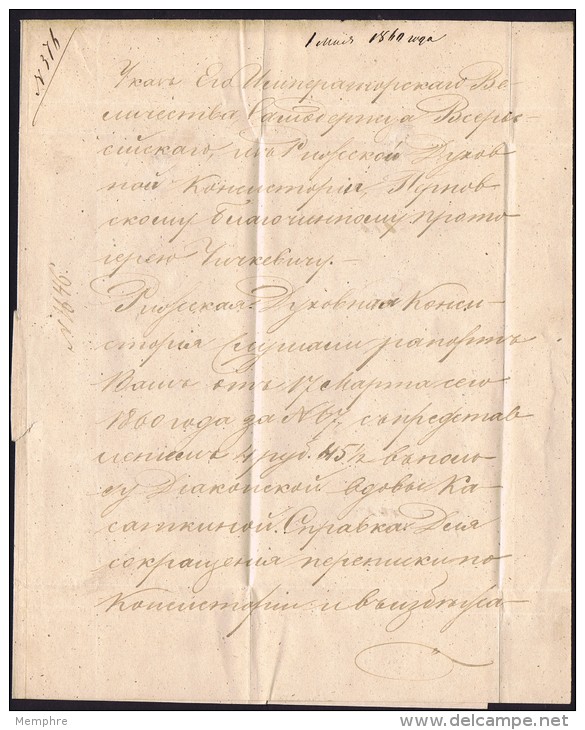 N 376
1 Мая 1860 года
Указъ Его Императорскаго Ве-
личества, Самодержца Всерос-
сійскаго, изъ Рижской Духов
ной Консисторіи, Пернов
скому благочинному прото
іерею Чичкевичу.—
N 1846.
Рижская Духовная Конси-
сторія Слушали рапортъ
Вашъ отъ 17 Марта сего
1860 года за N 67, съ представ
леніемъ 4 руб. 45½ въ поль-
зу Діаконской вдовы Ка-
саткиной. Справка: Для
сокращенія переписки по
Консисторіи и въ избѣжа-
Memphre
www.delcampe.net